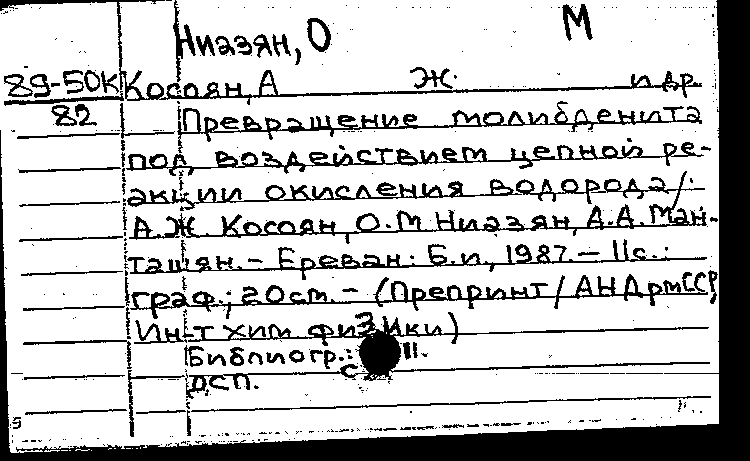 Ниазян, О М
89-50К Косоян, А Ж. и др.
82 Превращение молибденита
под воздействием цепной ре-
акции окисления водорода/:
А.Ж. Косоян, О.М. Ниазян, А.А. Ман-
ташян. – Ереван: Б.и., 1987. – 11с.:
граф.; 20см. – (Препринт/АНАрмССР,
Ин-т хим физики)
Библиогр.: с 11.
ДСП.